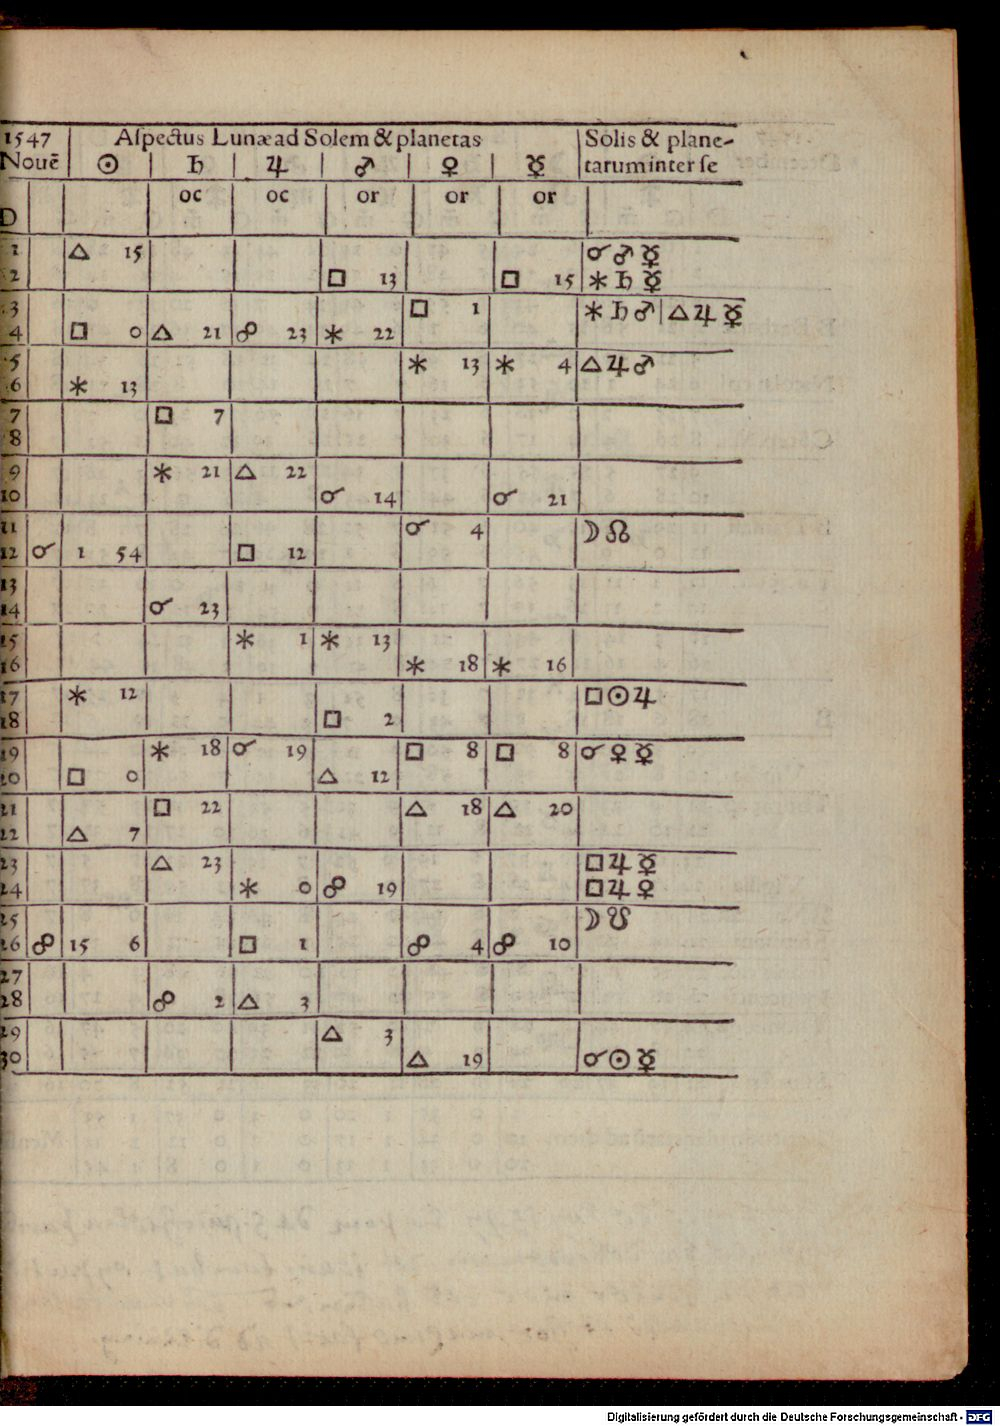 1547 | Aſpectus Lunæ ad Solem & planetas | Solis & plane-
Nouē | ☉ | ♄ | ♃ | ♂ | ♀ | ☿ | tarum inter ſe
D | oc | oc | or | or | or
1 △ 15 ☌ ♂ ☿
2 □ 13 □ 15 ⚹ ♄ ☿
3 □ 1 ⚹ ♄ ♂ | △ ♃ ☿
4 □ 0 △ 21 ☍ 23 ⚹ 22
5 ⚹ 13 ⚹ 4 △ ♃ ♂
6 ⚹ 13
7 □ 7
8
9 ⚹ 21 △ 22
10 ☌ 14 ☌ 21
11 ☌ 4 ☽ ☊
12 ☌ 1 54 □ 12
13
14 ☌ 23
15 ⚹ 1 ⚹ 13
16 ⚹ 18 ⚹ 16
17 ⚹ 12 □ ☉ ♃
18 □ 2
19 ⚹ 18 ☌ 19 □ 8 □ 8 ☌ ♀ ☿
20 □ 0 △ 12
21 □ 22 △ 18 △ 20
22 △ 7
23 △ 23 □ ♃ ☿
24 ⚹ 0 ☍ 19 □ ♃ ♀
25 ☽ ☋
26 ☍ 15 6 □ 1 ☍ 4 ☍ 10
27
28 ☍ 2 △ 3
29 △ 3
30 △ 19 ☌ ☉ ☿
Digitalisierung gefördert durch die Deutsche Forschungsgemeinschaft - DFG